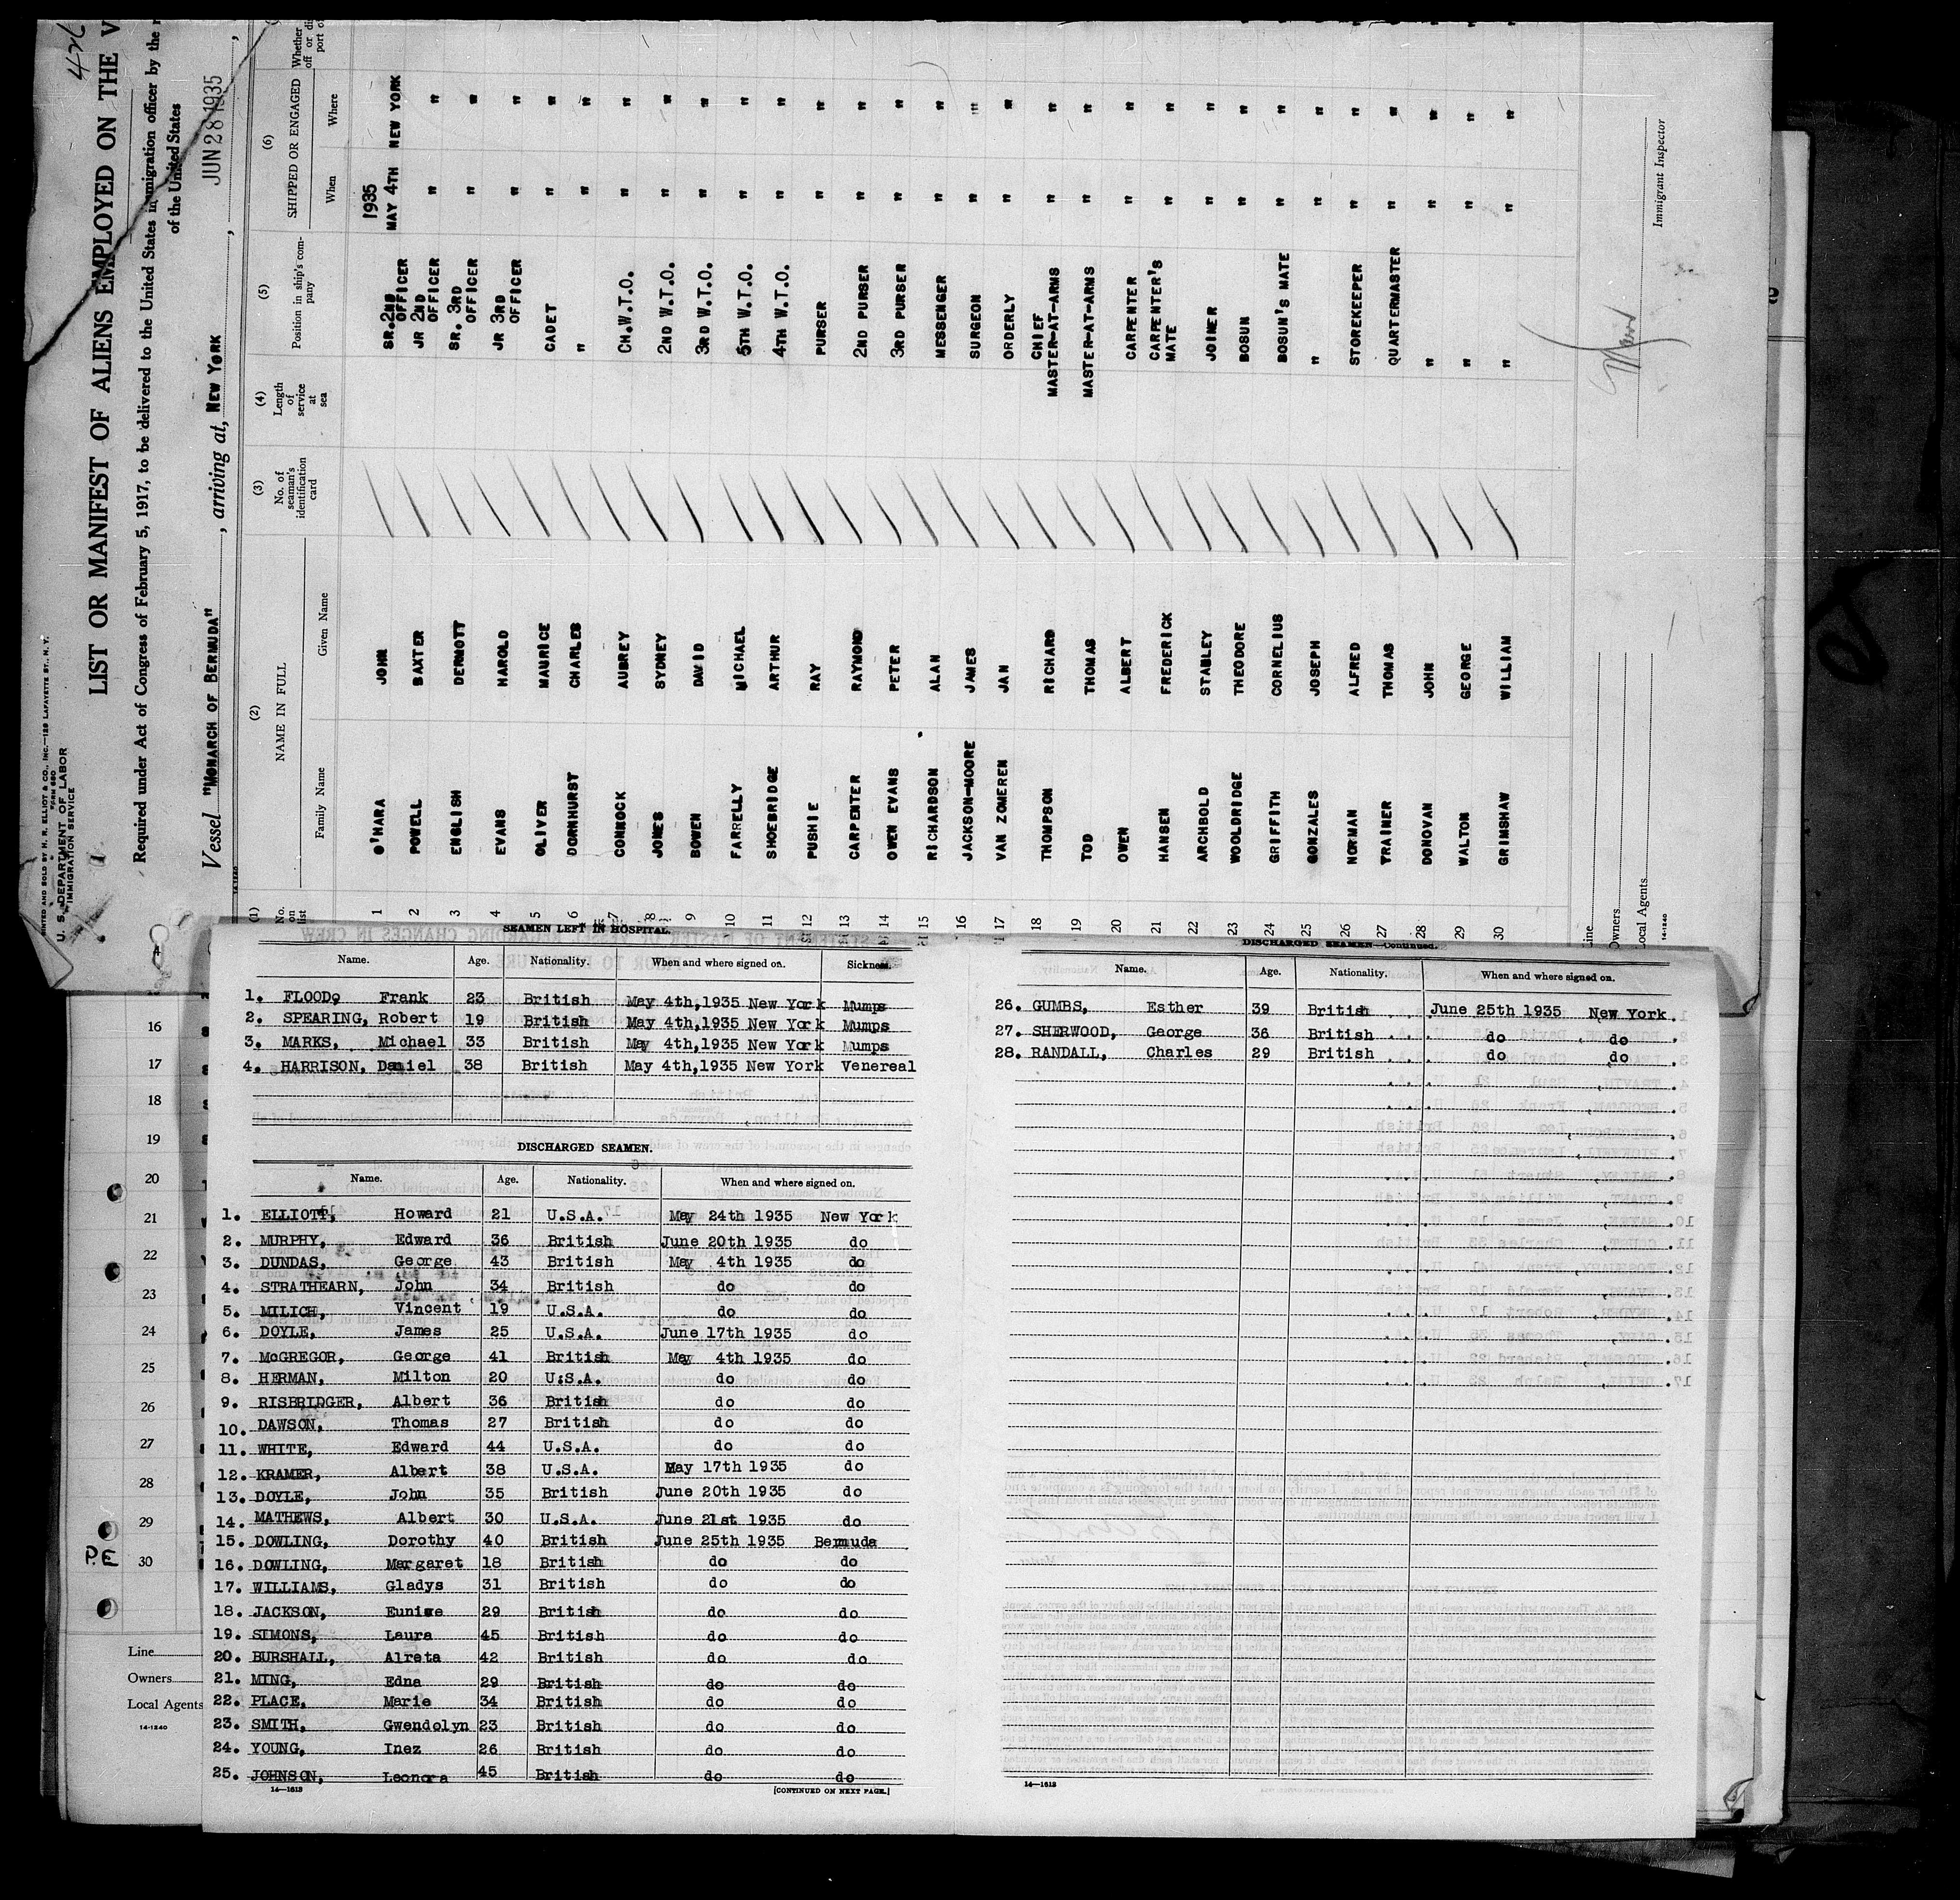 426
PRINTED AND SOLD BY H. R. ELLIOT & CO., INC.—129 LAFAYETTE ST., N. Y.
FORM 680
U. S. DEPARTMENT OF LABOR
IMMIGRATION SERVICE
LIST OR MANIFEST OF ALIENS EMPLOYED ON THE V
Required under Act of Congress of February 5, 1917, to be delivered to the United States immigration officer by the
of the United States
Vessel "MONARCH OF BERMUDA", arriving at, NEW YORK, JUN 28 1935,
(1) (2) (3) (4) (5) (6)
No. on list NAME IN FULL No. of seaman's identification card Length of service at sea Position in ship's company SHIPPED OR ENGAGED Whether
Family Name Given Name When Where
1935
1 O'HARA JOHN SR.2ND OFFICER MAY 4TH NEW YORK
2 POWELL BAXTER JR 2ND OFFICER " "
3 ENGLISH DERMOTT SR. 3RD OFFICER " "
4 EVANS HAROLD JR 3RD OFFICER " "
5 OLIVER MAURICE CADET " "
6 DORNHURST CHARLES " " "
7 CONNOCK AUBREY CH.W.T.O. " "
8 JONES SYDNEY 2ND W.T.O. " "
9 BOWEN DAVID 3RD W.T.O. " "
10 FARRELLY MICHAEL 5TH W.T.O. " "
11 SHOEBRIDGE ARTHUR 4TH W.T.O. " "
12 PUSHIE RAY PURSER " "
13 CARPENTER RAYMOND 2ND PURSER " "
14 OWEN EVANS PETER 3RD PURSER " "
15 RICHARDSON ALAN MESSENGER " "
16 JACKSON-MOORE JAMES SURGEON " "
17 VAN ZOMEREN JAN ORDERLY " "
18 THOMPSON RICHARD CHIEF MASTER-AT-ARMS " "
19 TOD THOMAS MASTER-AT-ARMS " "
20 OWEN ALBERT CARPENTER " "
21 HANSEN FREDERICK CARPENTER'S MATE " "
22 ARCHBOLD STABLEY JOINER " "
23 WOOLDRIDGE THEODORE BOSUN " "
24 GRIFFITH CORNELIUS BOSUN'S MATE " "
25 GONZALES JOSEPH " " "
26 NORMAN ALFRED STOREKEEPER " "
27 TRAINER THOMAS QUARTERMASTER " "
28 DONOVAN JOHN " " "
29 WALTON GEORGE " " "
30 GRIMSHAW WILLIAM " " "
Line
Owners
Local Agents
14-1240
Immigrant Inspector
SEAMEN LEFT IN HOSPITAL.
Name. Age. Nationality. When and where signed on. Sickness.
1. FLOOD, Frank 23 British May 4th,1935 New York Mumps
2. SPEARING, Robert 19 British May 4th,1935 New York Mumps
3. MARKS, Michael 33 British May 4th,1935 New York Mumps
4. HARRISON, Daniel 38 British May 4th,1935 New York Venereal
DISCHARGED SEAMEN.
Name. Age. Nationality. When and where signed on.
1. ELLIOTT, Howard 21 U.S.A. May 24th 1935 New York
2. MURPHY, Edward 36 British June 20th 1935 do
3. DUNDAS, George 43 British May 4th 1935 do
4. STRATHEARN, John 34 British do do
5. MILICH, Vincent 19 U.S.A. do do
6. DOYLE, James 25 U.S.A. June 17th 1935 do
7. McGREGOR, George 41 British May 4th 1935 do
8. HERMAN, Milton 20 U.S.A. do do
9. RISBRIDGER, Albert 36 British do do
10. DAWSON, Thomas 27 British do do
11. WHITE, Edward 44 U.S.A. do do
12. KRAMER, Albert 38 U.S.A. May 17th 1935 do
13. DOYLE, John 35 British June 20th 1935 do
14. MATHEWS, Albert 30 U.S.A. June 21st 1935 do
15. DOWLING, Dorothy 40 British June 25th 1935 Bermuda
16. DOWLING, Margaret 18 British do do
17. WILLIAMS, Gladys 31 British do do
18. JACKSON, Eunice 29 British do do
19. SIMONS, Laura 45 British do do
20. BURSHALL, Alreta 42 British do do
21. MING, Edna 29 British do do
22. PLACE, Marie 34 British do do
23. SMITH, Gwendolyn 23 British do do
24. YOUNG, Inez 26 British do do
25. JOHNSON, Leonora 45 British do do
14—1613 [CONTINUED ON NEXT PAGE.]
DISCHARGED SEAMEN—Continued.
Name. Age. Nationality. When and where signed on.
26. GUMBS, Esther 39 British June 25th 1935 New York
27. SHERWOOD, George 36 British do do
28. RANDALL, Charles 29 British do do
14—1613
16
17
18
19
20
21
22
23
24
25
26
27
28
29
30
Line
Owners
Local Agents
14-1240